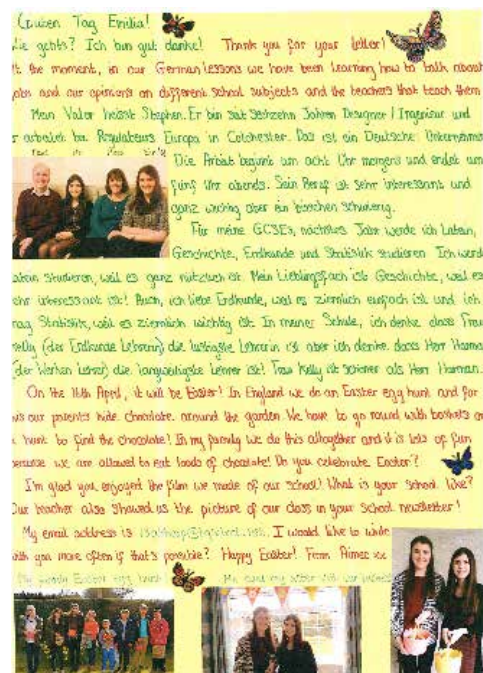 Guten Tag Emilia!
Wie gehts? Ich bin gut danke! Thank you for your letter!
At the moment, in our German lessons we have been learning how to talk about
jobs and our opinions on different school subjects and the teachers that teach them
Mein Vater heisst Stephen. Er bin seit sechzehn Jahren Designer / Ingenieur und
er arbeitet bei Regulateurs Europa in Colchester. Das ist ein Deutsche Unternehmen
Die Arbeit beginnt um acht Uhr morgens und endet um
fünf Uhr abends. Sein Beruf ist sehr interessant und
ganz wichtig aber ein bisschen schwierig.
Für meine GCSEs, nächstes Jahr werde ich Latein,
Geschichte, Erdkunde und Statistik studieren Ich werde
Latein studieren, weil es ganz nützlich ist. Mein Lieblingsfach ist Geschichte, weil es
sehr interessant ist! Auch, ich liebe Erdkunde, weil es ziemlich einfach ist und ich
mag Statistik, weil es ziemlich wichtig ist. In meiner Schule, ich denke dass Frau
Kelly (der Erdkunde Lehrerin) die lustigste Lehrerin ist aber ich denke dass Herr Harman
(der Werken Lehrer) die langweiligste Lehrer ist! Frau Kelly ist schöner als Herr Harman.
On the 16th April, it will be Easter! In England we do an Easter egg hunt and for
us our parents hide chocolate around the garden We have to go round with baskets on
a hunt to find the chocolate! In my family we do this altogether and it is lots of fun
because we are allowed to eat loads of chocolate! Do you celebrate Easter?
I'm glad you enjoyed the film we made of our school! What is your school like?
Our teacher also showed us the picture of our class in your school newsletter!
My email address is I would like to write
with you more often if that's possible? Happy Easter! From Aimee xx
My family Easter egg hunt
Me and my sister with our